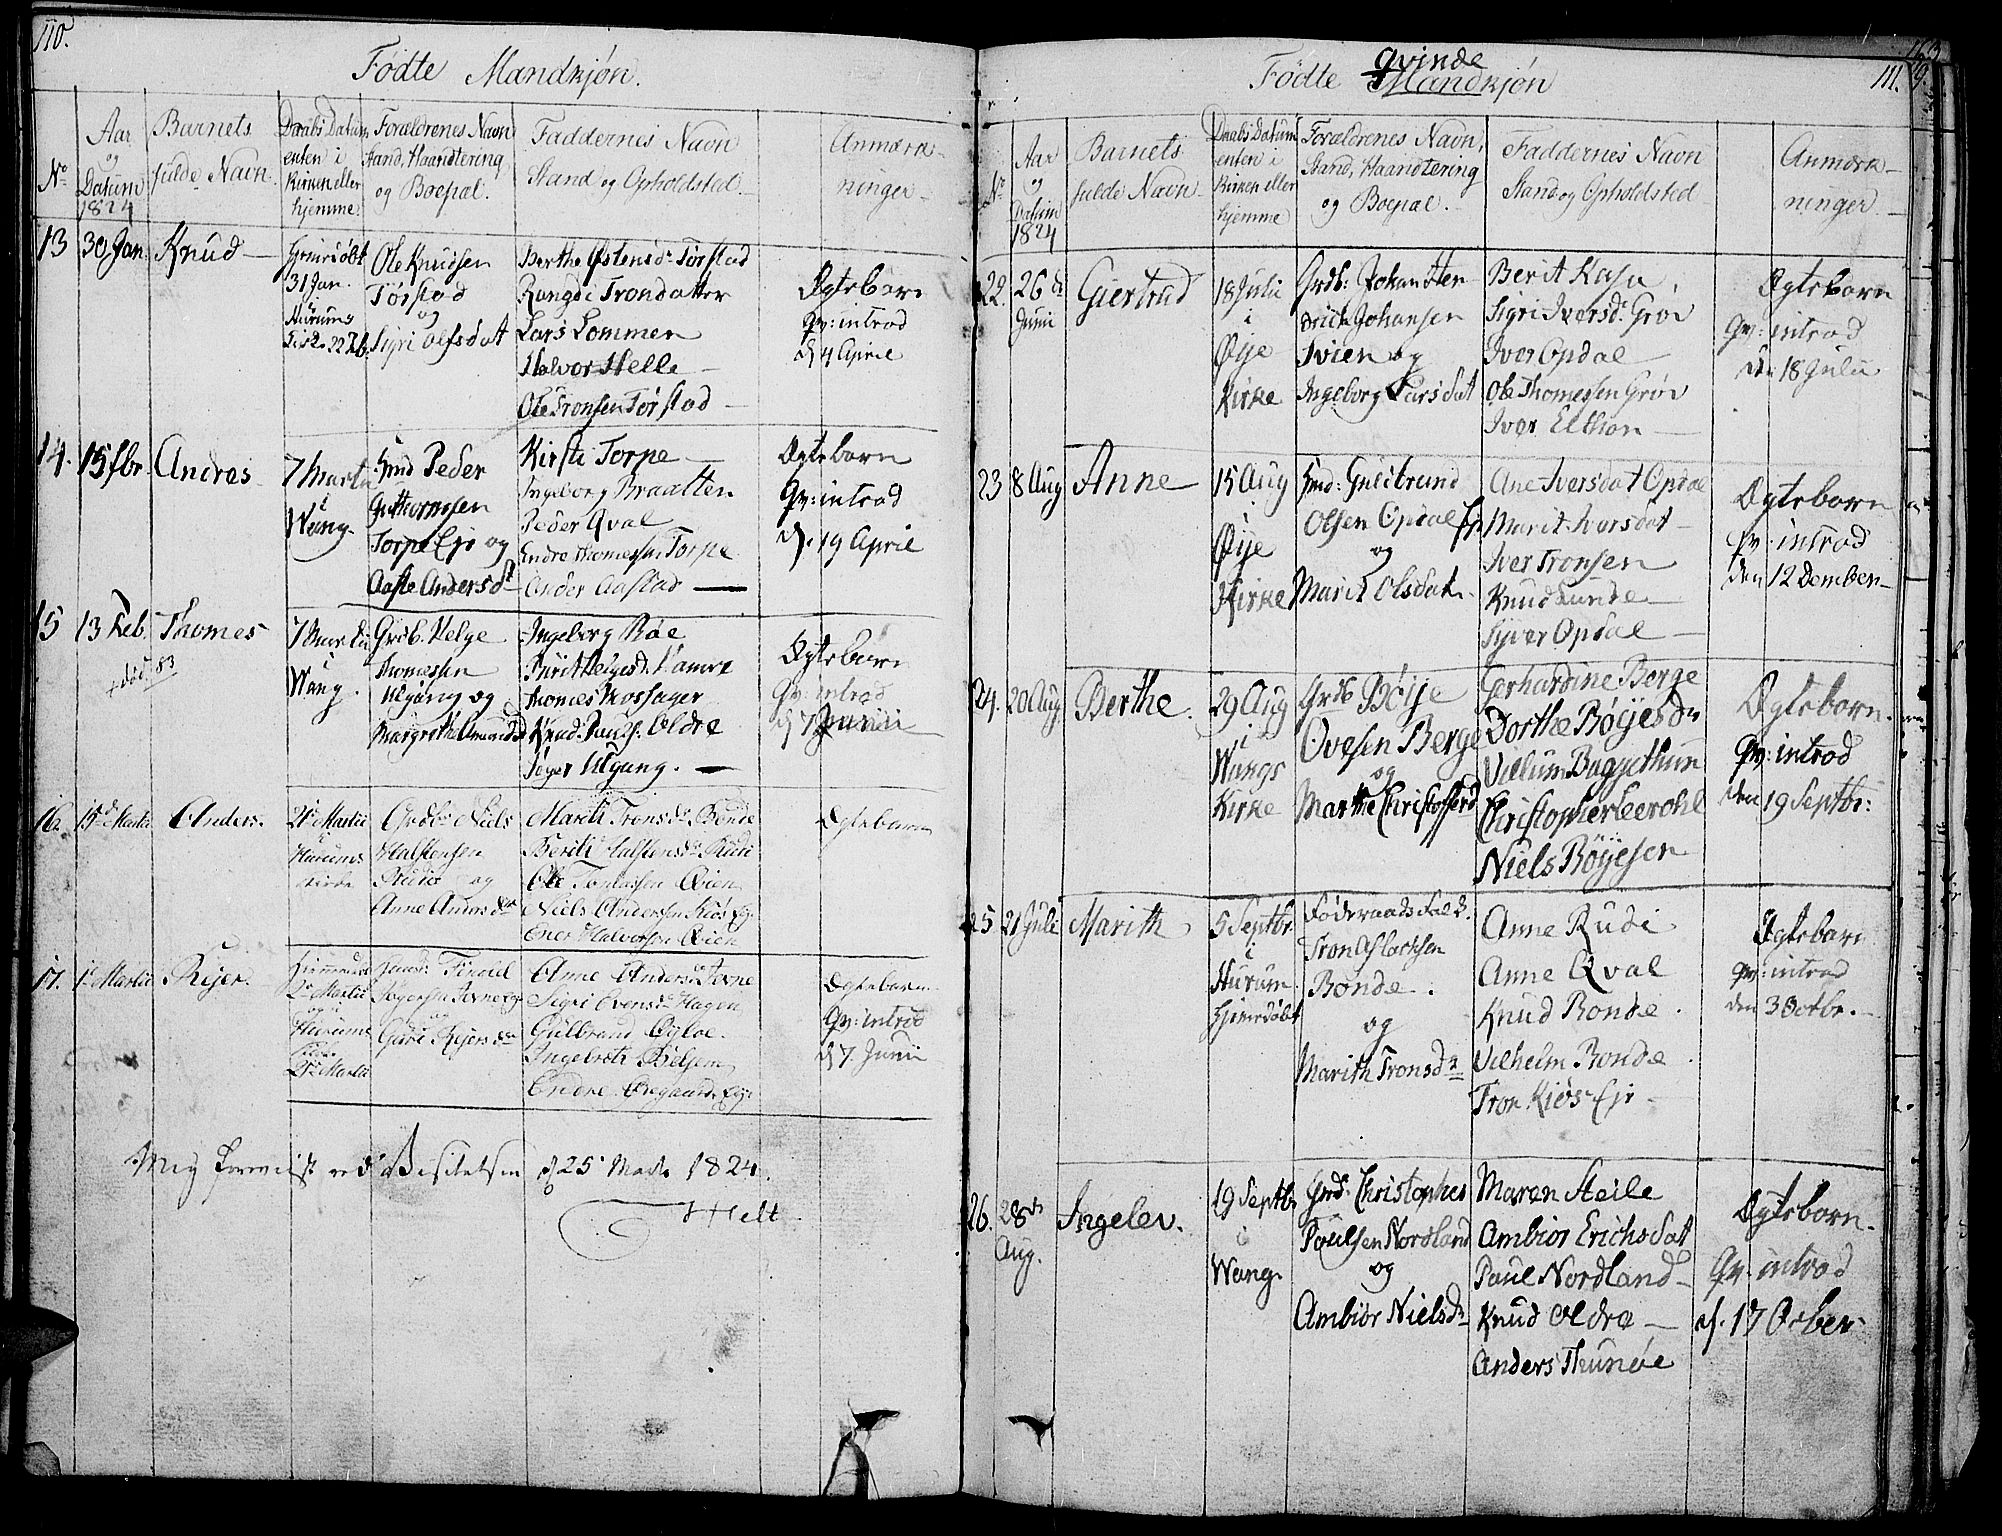 110.
Fødte Mandkjøn.
No
Aar og Datum 1824
Barnets fulde Navn
Daabs Datum enten i Kirken eller hjemme
Forældrenes Navn Stand, Haandtering og Boepæl.
Faddernes Navn Stand og Opholdsted
Anmærkninger
13
30 Jan
Knud
Hjemedøbt
31 Jan.
Hurums
Kirke 22 Feb.
Ole Knudsen
Tørstad
og
Sigri Olfsdat
Berthe Østensdr Tørstad
Rangdi Trondatter
Lars Lommen
Halvor Helle
Ole Tronsen Tørstad
Ægtebarn
Qv: introd
d 4 April
14.
15 fbr
Andres
7 Martii
i
Wang
Hmd Peder
Guttormsen
Torpe Eje og
Aaste Andersdt
Kirsti Torpe
Ingeborg Braatten
Peder Qval
Endre Thomessen Torpe
Ander Aastad
Ægtebarn
Qv: introd
d. 19 April
15
13 Feb.
+ død 83
Thomes
7 Martii
i
Wang.
Grdb. Helge
Thomessen
Utgang og
Margrethe Amundsd
Ingeborg Røe
Thomes Mossager
Knud Pauls. Oldre
Utgang.
Ægtebarn
Qv: introd
d 7 Junii
16.
15de Martii
Anders.
21de Martii
i
Hurums
Kirke
Grdbr Niels
Halstensen
Rudi og
Anne Andersdtr
Marit Tronsdr Bonde
Berit Halstensdr Rudi
Ole Tomassen Øvien
Niels Andersen Kiøs Eje
Ener Halvorsen Øvien
Ægtebarn
17.
1de Martii
Rejer.
Hjemmedøbt
2de Martii
og i
Hurums
Kirke
21de Martii
Huusm: Findel
Jøgersen Jerne Eje
og
Guri Rejersdtr
Anne Andersdr Jerne
Sigri Evensdr Hagen
Gulbrand Øyloe
Ingebret Bielsem
Endre Øregaard Eje
Ægtebarn
Qv: introd
d 7 Junii
ved Visitatsen d 25 Martz 1824.
Helt
111.
Fødte Qvinde Mandkjøn
No
Aar og Datum 1824
Barnets fulde Navn
Daabs Datum enten i Kirken eller hjemme
Forældrenes Navn, Stand, Haandtering og Boepæl.
Faddernes Navn Stand og Opholdsted
Anmærkninger
22.
26de
Junii
Giertrud
18 Julii
i
Øije
Kirke
Grdb: Johan Sten
Erich Johansen
Hvien og
Ingeborg Larsdat
Berit Kasa,
Sigri Iversdr Grøv
Iver Opdal
Ole Thomessen Grøv
Iver Elthon
Ægtebarn
Qv: introd
den 18 Julii
23
8 Aug
Anne
15 Aug
i
Øije
Kirke
Hmd: Guldbrand
Olsen Opdal Ejr
og
Marit Olsdat.
Ane Iversdat Opdal
Marit Iversdat
Iver Tronsen
Knud Lunde
Syver Opdal
Ægtebarn
Qv: introd
den 12 Dember
24.
20 Aug.
Berthe.
29 Aug
i
Wangs
Kirke
Grdb Bøije
Ovesen Berge
og
Marthe Christofferd
Gerhardine Berge
Dorthe Bøyesdr
Villum Baggethun
Christopher Leerohl
Niels Bøyesen
Ægtebarn.
Qv: introd
den 19 Septbr:
25.
21 Juli
Marith
5 Septbr
i
Hurum.
Hjemedøbt
Føderaads Folk.
Tron Aslacksen
Bonde.
og
Marith Tronsdr
Anne Rudi
Anne Qval
Knud Bonde.
Vilhelm Bonde
Tron Kiøs Ejr
Ægtebarn
Qv: introd
den 3 Octbr.
26.
28de
Aug.
Ingelev.
19 Septbr
i
Wang.
Grd: Christopher
Poulsen Nordland
og
Ambiør Nielsdr
Maren Steile
Ambiør Erichsdat
Paul Nordland
Knud Oldre
Anders Thunøe
Ægtebarn.
Qv: introd
d. 17 Ocber